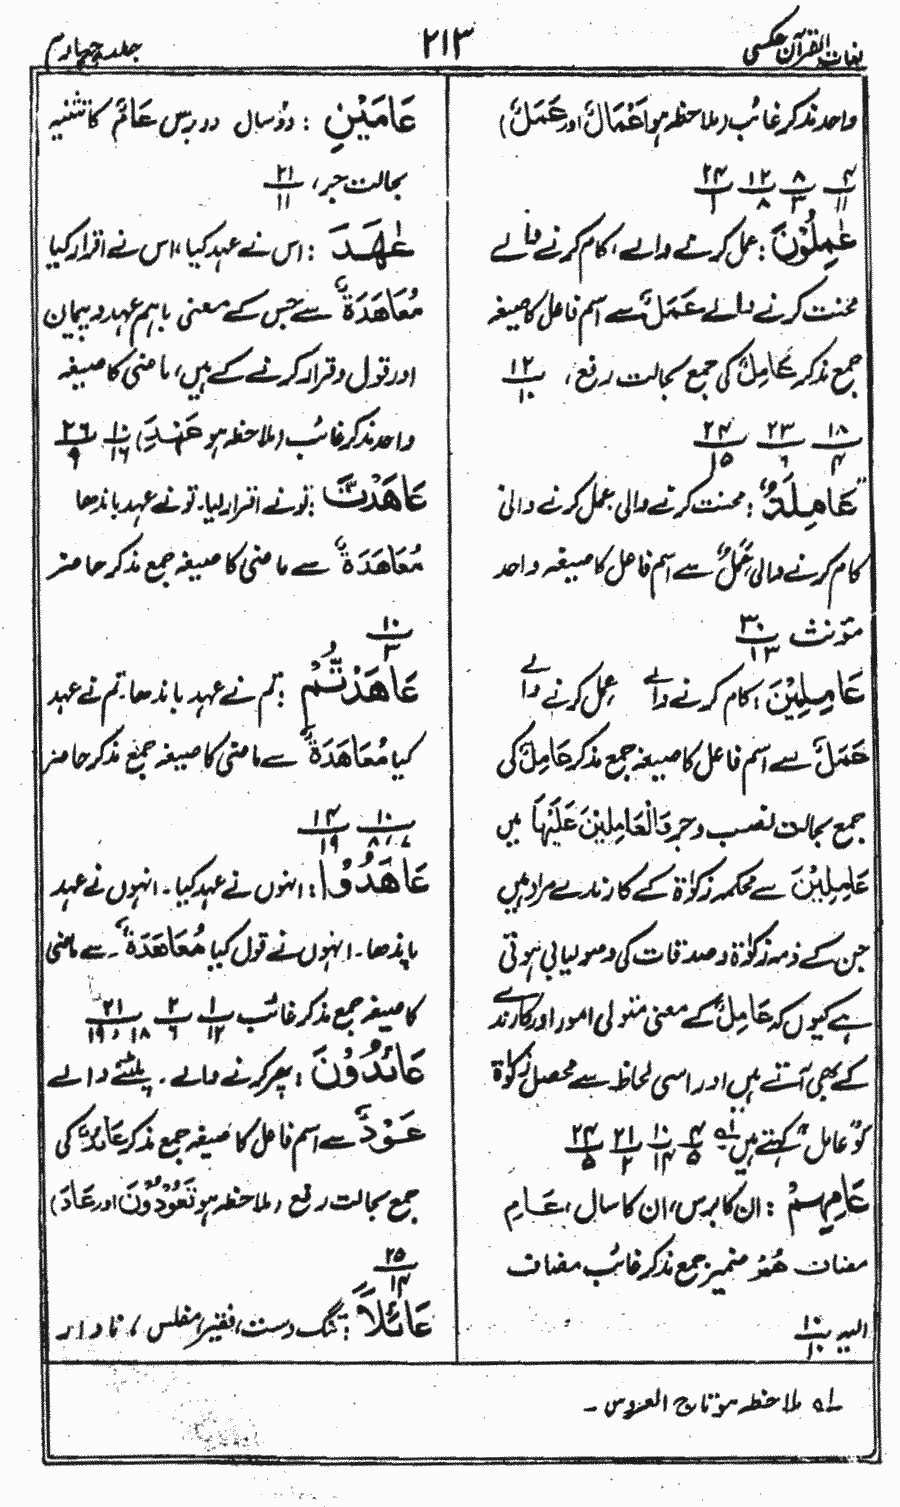 لغات القرآن عکسی
۲۱۳
جلد چہارم
واحد مذکر غائب (ملاحظہ ہو اَعْمَالٌ اور عَمَلٌ)
۴/۱۱ ۸/۳ ۱۲/۸ ۲۴/۱
عٰمِلُوْنَ : عمل کرنے والے، کام کرنے والے
محنت کرنے والے عَمَلٌ سے اسم فاعل کا صیغہ
جمع مذکر عَامِلٌ کی جمع بحالت رفع، ۱۲/۱۰
۱۸/۴ ۲۳/۶ ۲۴/۱۵
عَامِلَةٌ : محنت کرنے والی عمل کرنے والی
کام کرنے والی عَمَلٌ سے اسم فاعل کا صیغہ واحد
مؤنث ۳۰/۱۳
عَامِلِيْنَ : کام کرنے والے عمل کرنے والے
عَمَلٌ سے اسم فاعل کا صیغہ جمع مذکر عَامِلٌ کی
جمع بحالت نصب و جر وَالْعَامِلِيْنَ عَلَيْهَا میں
عَامِلِيْنَ سے محکمہ زکوٰۃ کے کارندے مراد ہیں
جن کے ذمہ زکوٰۃ و صدقات کی وصولیابی ہوتی
ہے کیوں کہ عَامِلٌ کے معنی متولی امور اور کارندے
کے بھی آتے ہیں اور اسی لحاظ سے محصل زکوٰۃ
کو "عامل" کہتے ہیں لہ ۴/۵ ۱۰/۱۴ ۲۱/۲ ۲۴/۵
عَامِهِمْ : ان کا برس، ان کا سال، عَامِ
مضاف هُمْ ضمیر جمع مذکر غائب مضاف
الیہ ۱۰/۱۰
عَامَيْنِ : دو سال دو برس عَامٌ کا تثنیہ
بحالت جر، ۲۱/۱۱
عٰهَدَ : اس نے عہد کیا، اس نے اقرار کیا
مُعَاهَدَةٌ سے جس کے معنی باہم عہد و پیمان
اور قول و قرار کرنے کے ہیں، ماضی کا صیغہ
واحد مذکر غائب (ملاحظہ ہو عَهِدَ) ۱۰/۱۶ ۲۶/۹
عَاهَدْتَّ : تو نے اقرار لیا۔ تو نے عہد باندھا
مُعَاهَدَةٌ سے ماضی کا صیغہ جمع مذکر حاضر
۱۰/۳
عَاهَدْتُّمْ : تم نے عہد باندھا۔ تم نے عہد
کیا مُعَاهَدَةٌ سے ماضی کا صیغہ جمع مذکر حاضر
۱۰/۷، ۸ ۱۴/۱۹
عَاهَدُوْا : انہوں نے عہد کیا۔ انہوں نے عہد
باندھا۔ انہوں نے قول کیا مُعَاهَدَةٌ۔ سے ماضی
کا صیغہ جمع مذکر غائب ۱/۱۲ ۲/۶ ۲۱/۱۸، ۱۹
عَائِدُوْنَ : پھر کرنے والے۔ پلٹنے والے
عَوْدٌ سے اسم فاعل کا صیغہ جمع مذکر عَائِدٌ کی
جمع بحالت رفع (ملاحظہ ہو تَعُوْدُوْنَ اور عَادَ)
۲۵/۱۴
عَائِلًا : تنگ دست، فقیر، مفلس، نادار
لہ ملاحظہ ہو تاج العروس۔